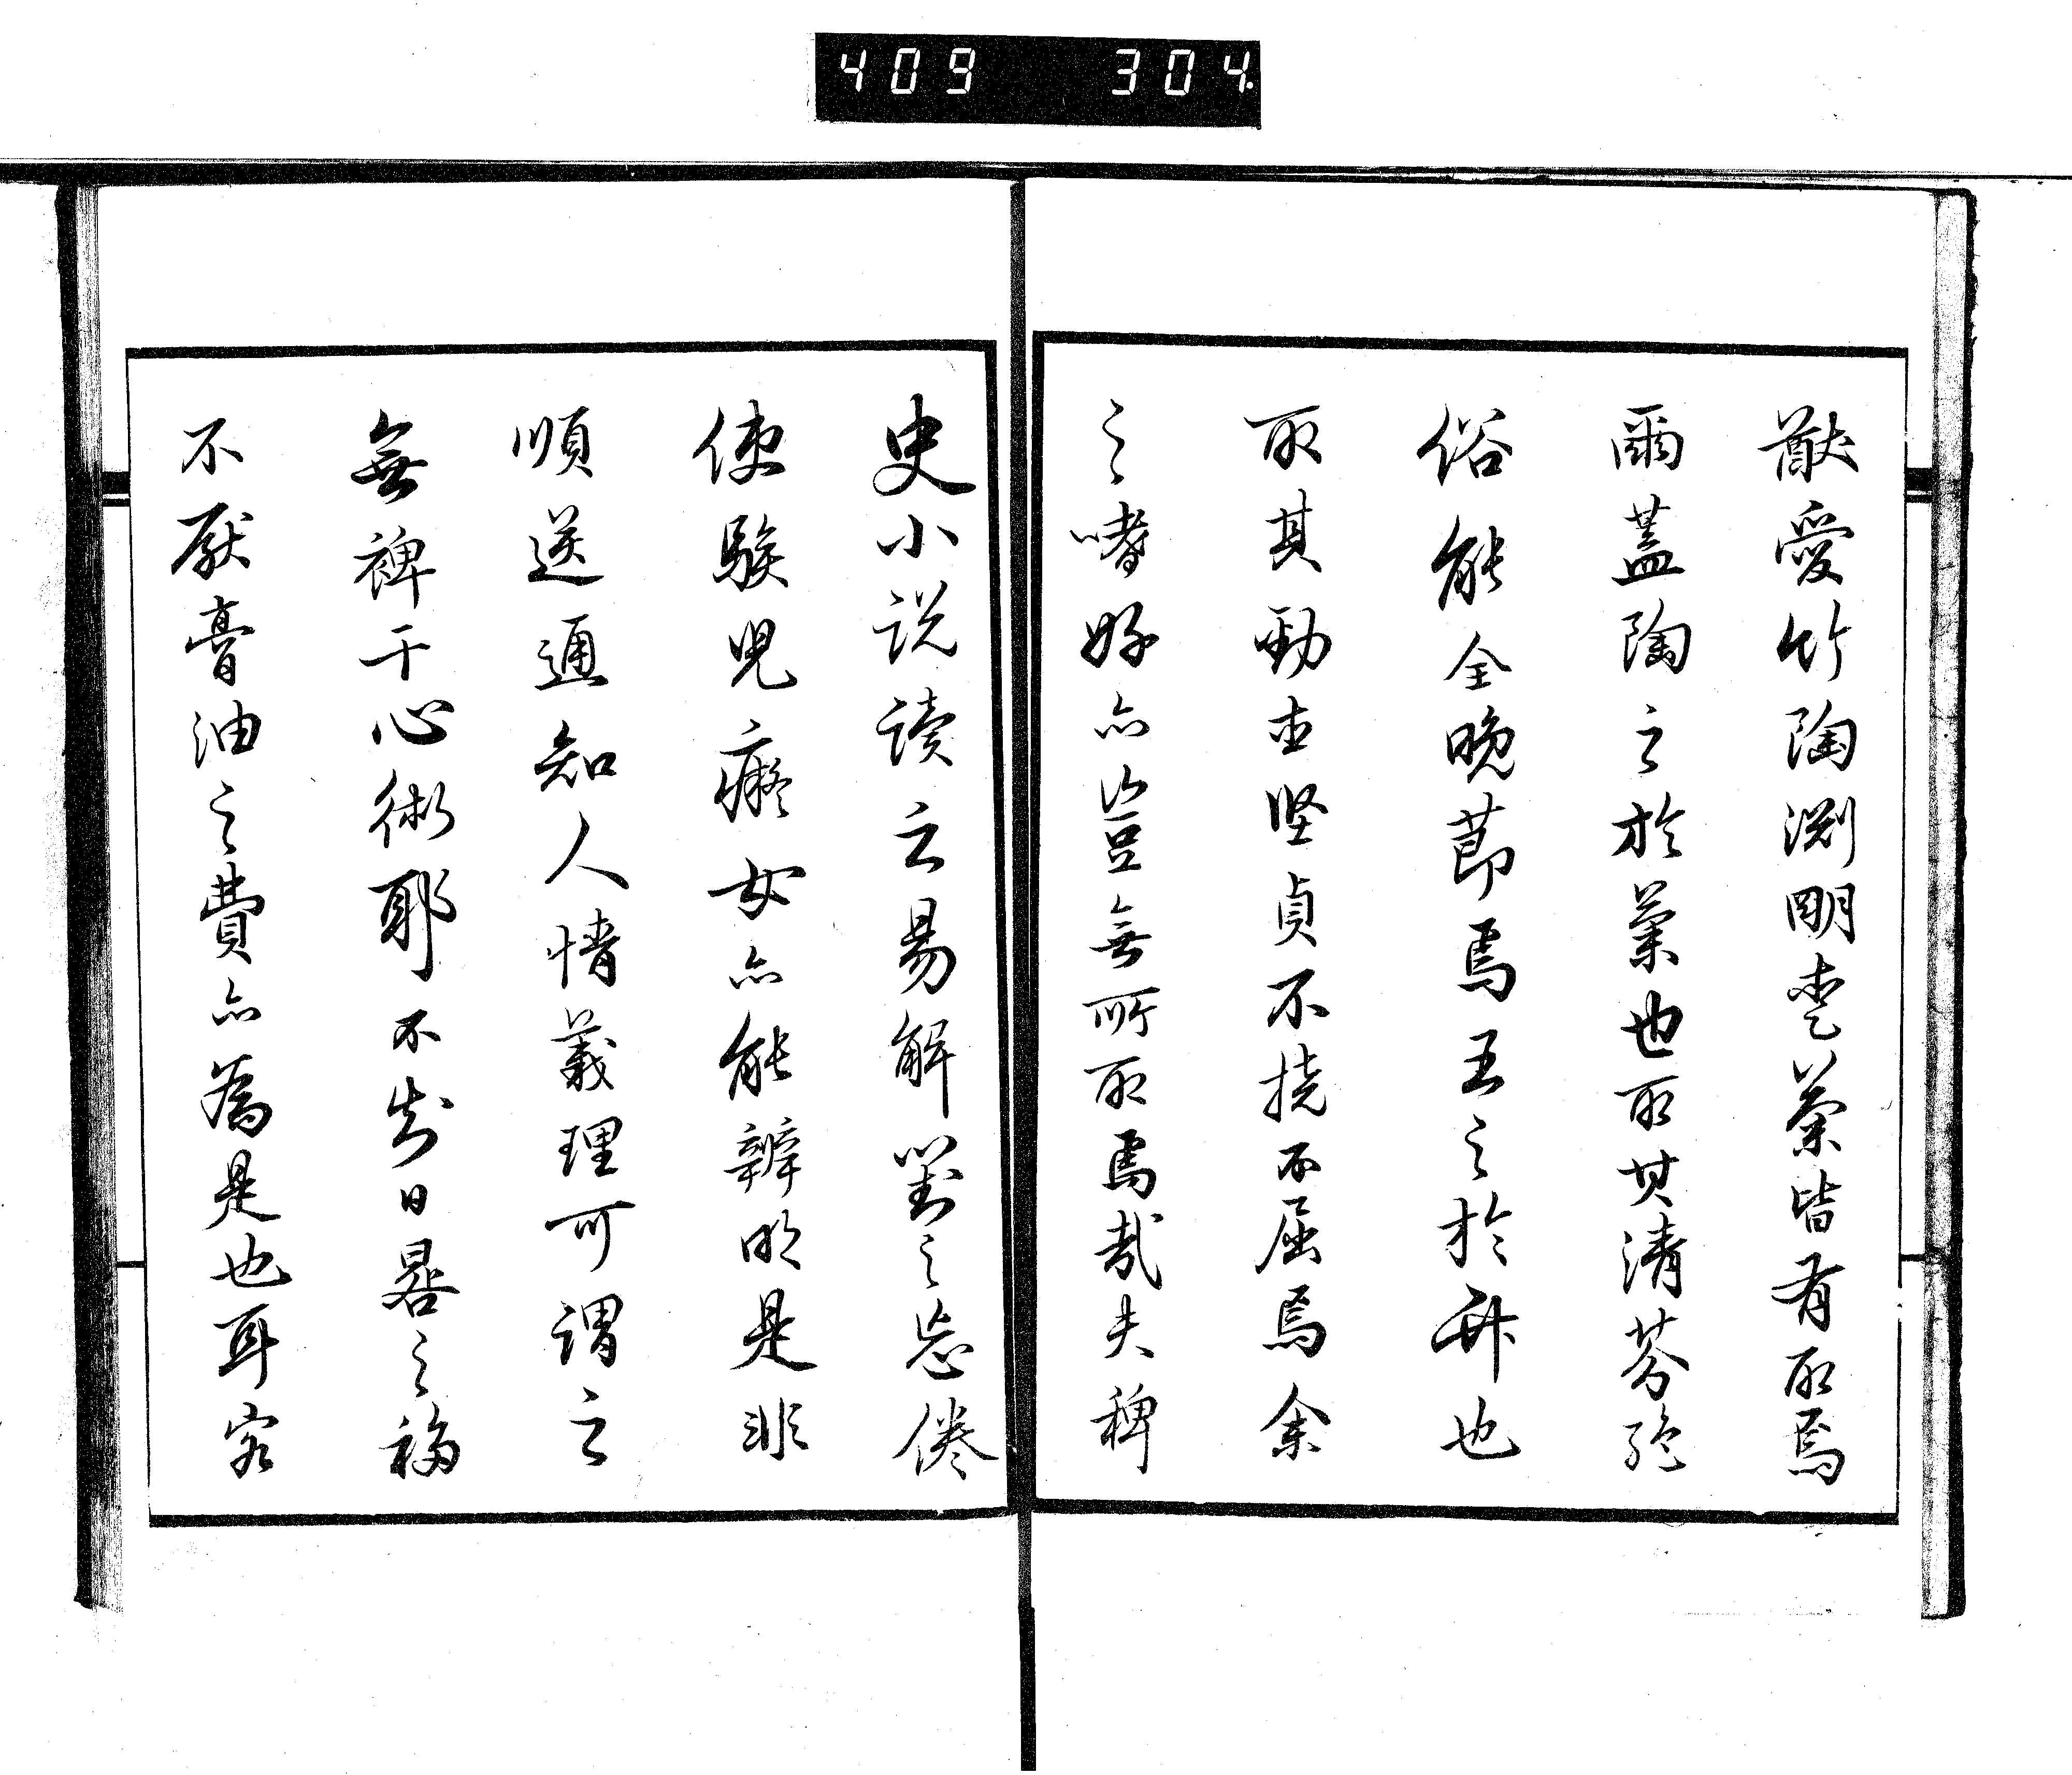 猷愛竹陶淵明愛菊皆有取焉
爾蓋陶之於菊也取其清芬絶
俗能全晚節焉王之於竹也
取其勁直堅貞不撓不屈焉余
之嗜好亦豈無所取焉哉夫稗
史小説讀之易解對之忘倦
使騃児癡女亦能辨明是非
順逆通知人情義理可謂之
無裨于心術耶不知日晷之移
不厭膏油之費亦為是也耳客
409 304